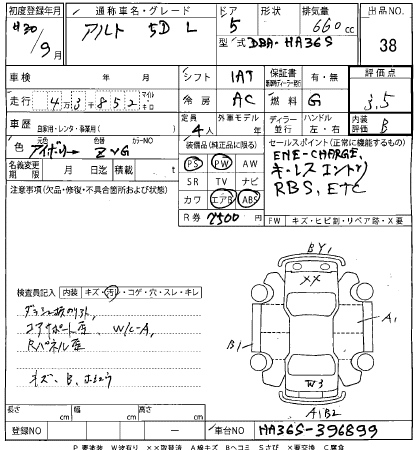 初度登録年月 通称車名・グレード ドア 形状 排気量 出品NO.
H30 / 9月 アルト 5D L 5 660cc 38
型式 DBA-HA36S
車検 年 月 シフト IAT 保証書 有・無 評価点
走行 4万3千852 マイル キロ 冷房 AC 燃料 G 3.5
車歴 自家用・レンタ・事業用( ) 定員 4人 外車モデル 年 ディーラー 並行 ハンドル 左・右 内装評価 B
色 アイボリー 色替 カラーNO ZVG 装備品(純正品に限る) セールスポイント(正常に機能するもの)
名義変更期限 月 日迄 積載 t PS PW AW ENE-CHARGE,
注意事項(欠品・修復・不具合箇所および状態) SR TV ナビ キーレスエントリー
カワ エアB ABS RBS, ETC
R券 7500 円 FW キズ・ヒビ割・リペア跡・X要
BY1
XX
検査員記入 内装 キズ・汚レ・コゲ・穴・スレ・キレ
W/C-A, A1
コアサポート歪
Rパネル歪 B1
キズ、B、
W3
A1B2
長さ cm 幅 cm 高さ cm
登録NO ー 車台NO HA36S-396899
P要塗装 W波有り XX取替済 A線キズ Bヘコミ Sさび X要交換 C腐食